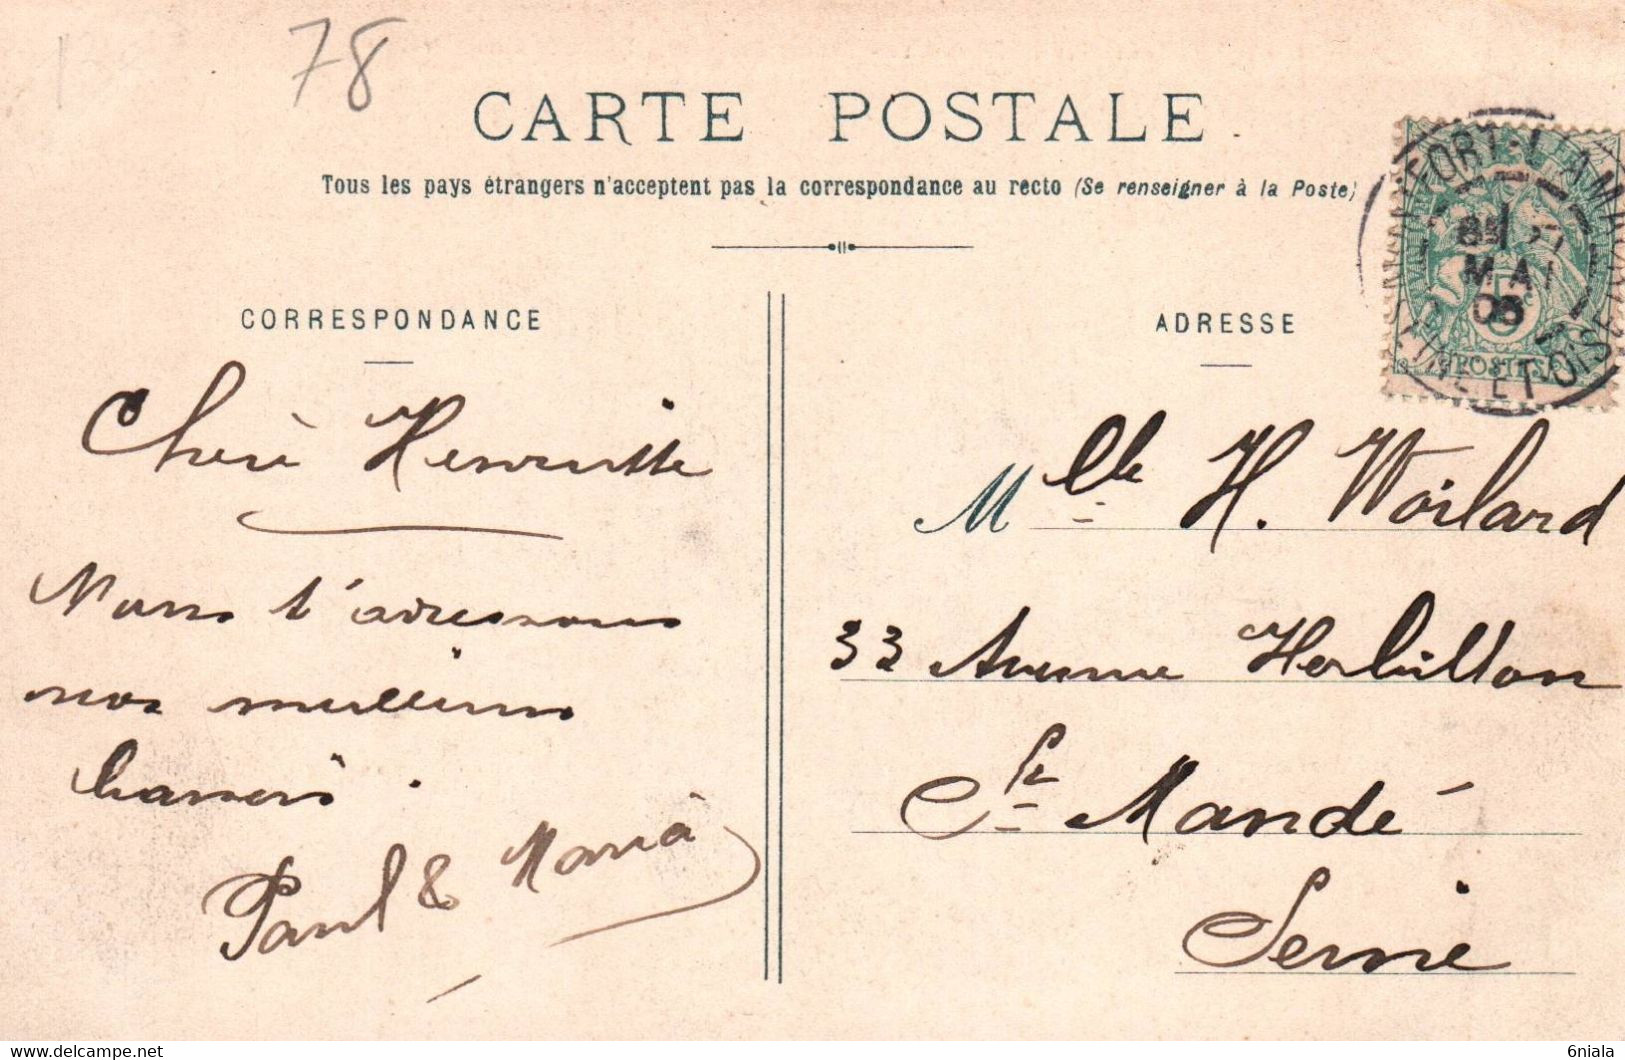 78
CARTE POSTALE
Tous les pays étrangers n'acceptent pas la correspondance au recto (Se renseigner à la Poste)
CORRESPONDANCE
Chère Henriette
Nous t'adressons
nos meilleurs
baisers.
Paul & Maria
ADRESSE
Mlle H. Woilard
33 Avenue Herbillon
St Mandé
Seine
MONTFORT-L'AMAURY
MAI
SEINE-ET-OISE
5c
POSTES
www.delcampe.net
6niala